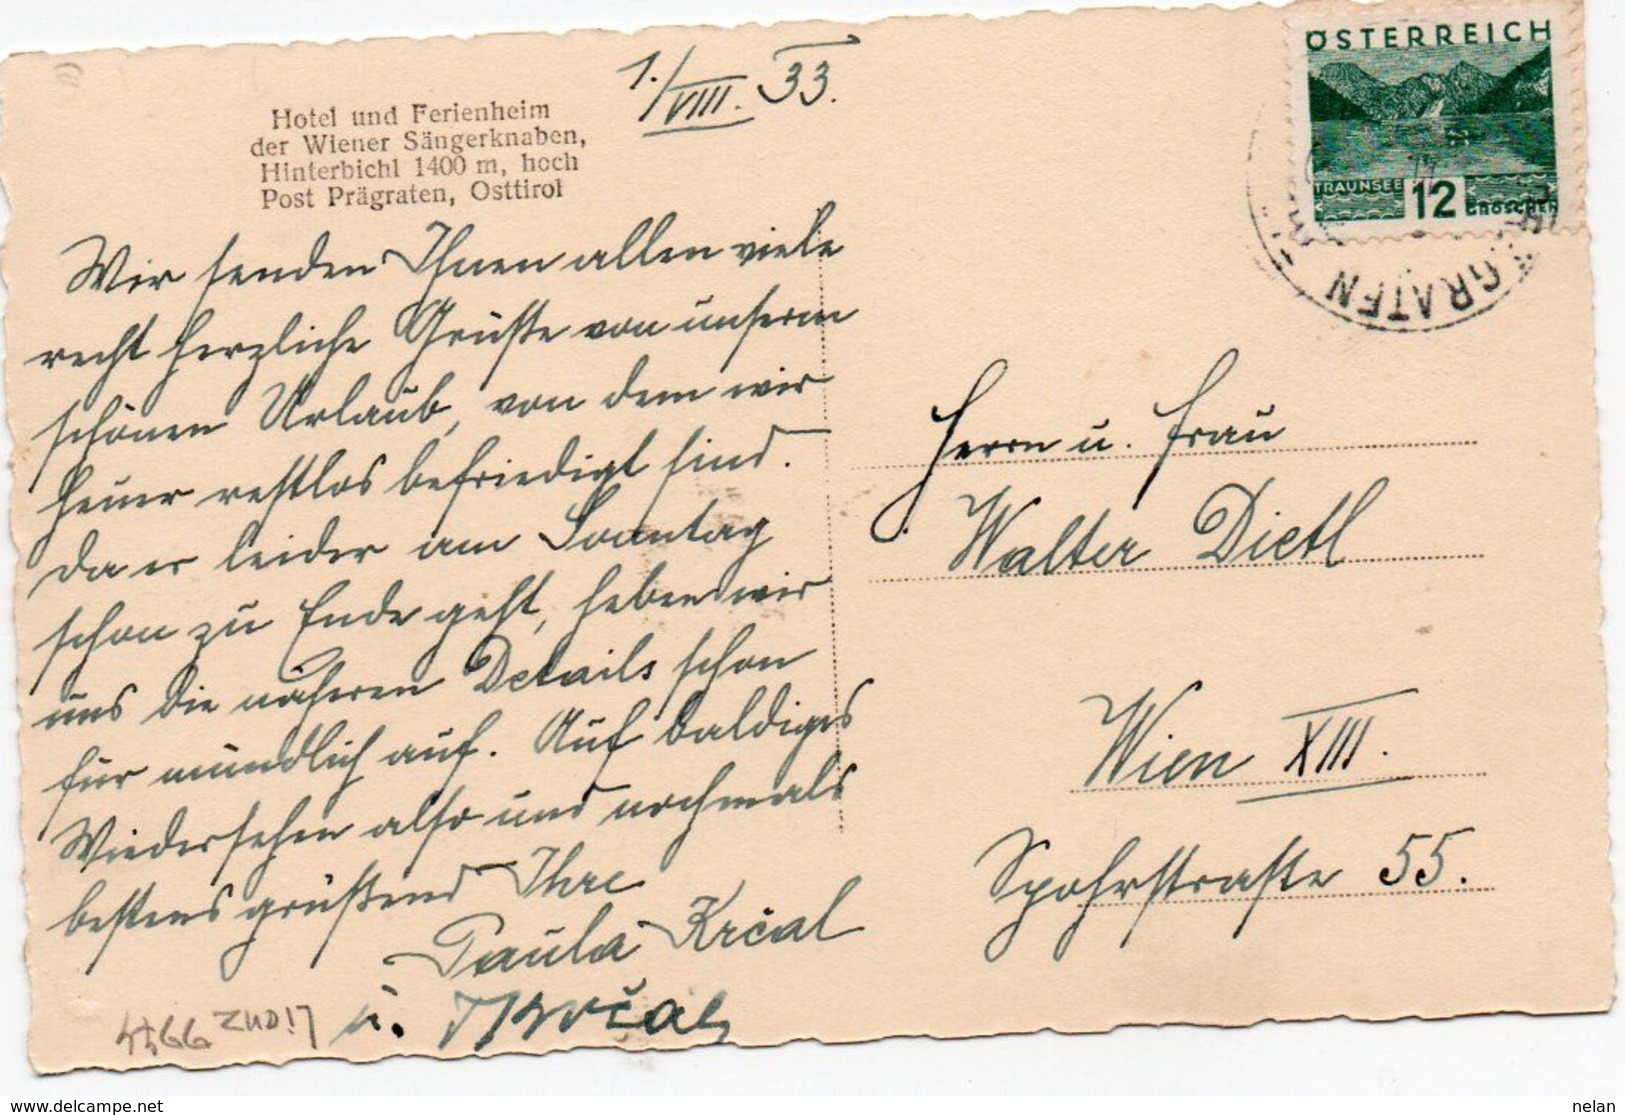 1./VIII. 33.
Hotel und Ferienheim
der Wiener Sängerknaben,
Hinterbichl 1400 m, hoch
Post Prägraten, Osttirol
ÖSTERREICH
TRAUNSEE 12 GROSCHEN
GRATEN
Wir senden Ihnen allen viele
recht herzliche Grüße von unserm
schönen Urlaub, von dem wir
heuer restlos befriedigt sind.
Da er leider am Sonntag
schon zu Ende geht, heben wir
uns die näheren Details schon
für mündlich auf. Auf baldiges
Wiedersehen also und nochmals
bestens grüßend Ihre
Paula Krčal
u. Krčal
Herrn u. Frau
Walter Dietl
Wien XIII.
Spohrstraße 55.
LIONZ
www.delcampe.net
nelan